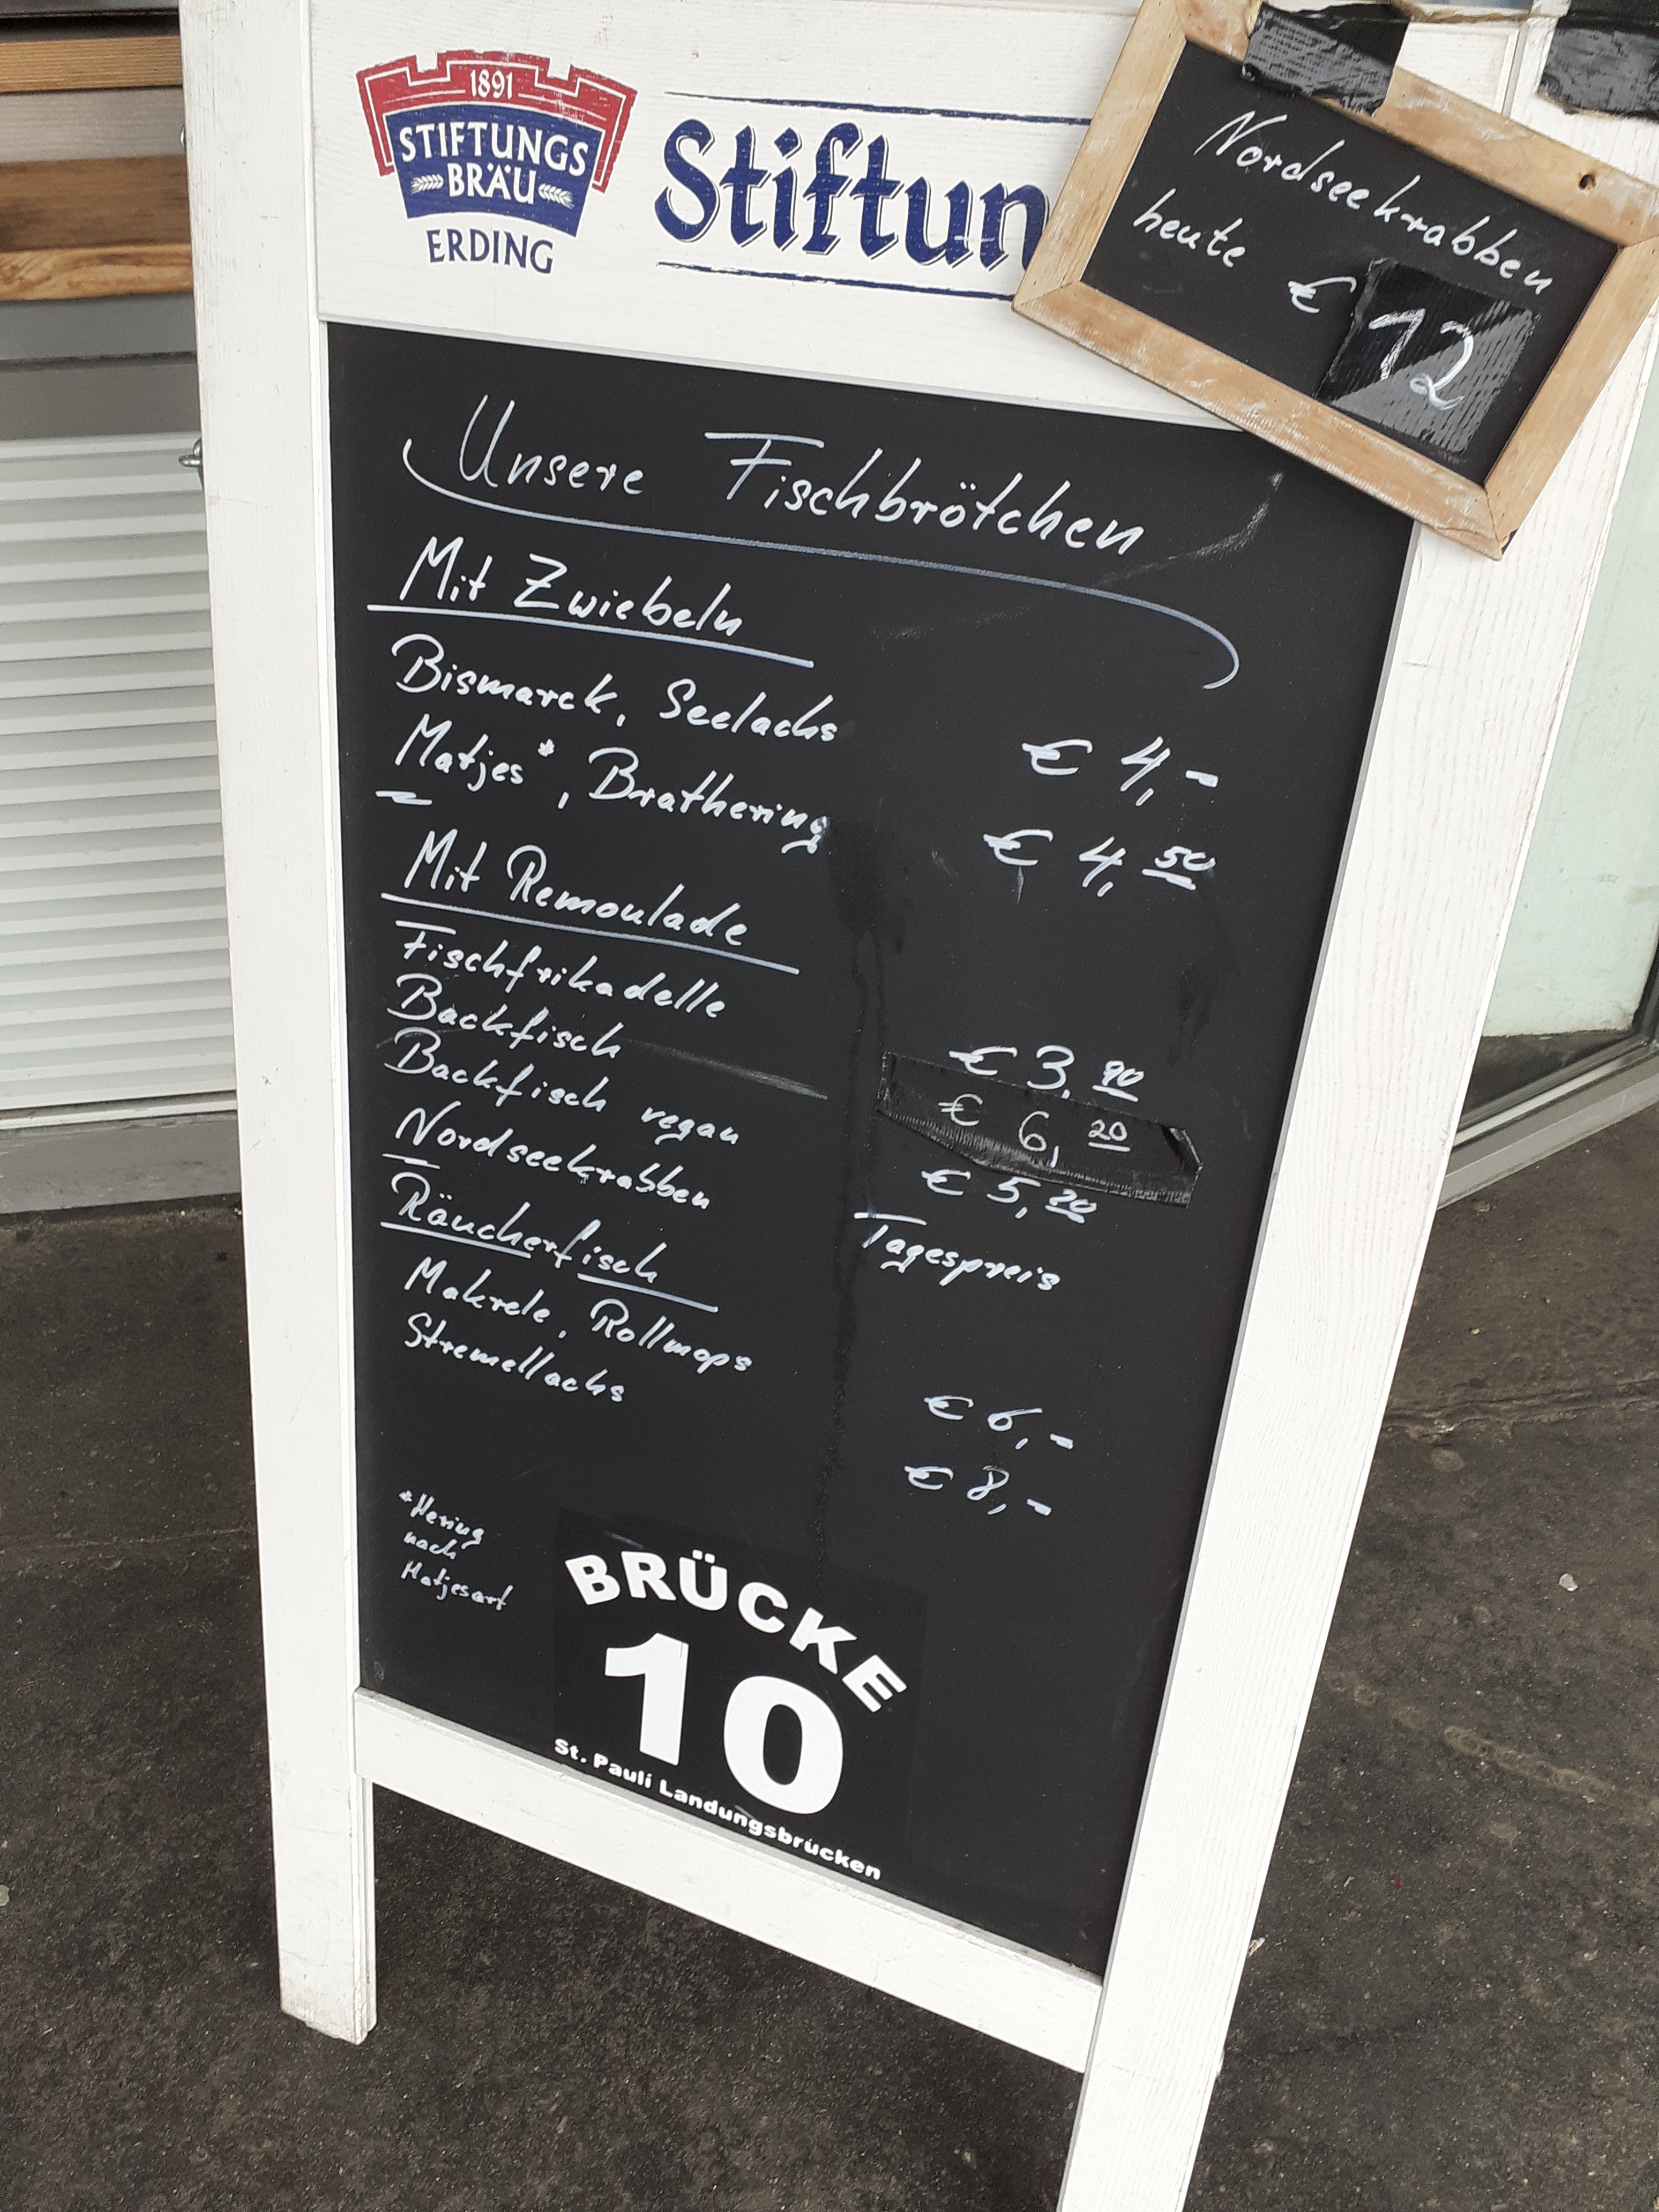 1891
STIFTUNGS
BRÄU
ERDING
Stiftun
Nordseekrabben
heute € 12
Unsere Fischbrötchen
Mit Zwiebeln
Bismarck, Seelachs € 4,-
Matjes*, Brathering € 4,50
Mit Remoulade
Fischfrikadelle € 3,90
Backfisch € 6,20
Backfisch vegan € 5,20
Nordseekrabben Tagespreis
Räucherfisch
Makrele, Rollmops € 6,-
Stremellachs € 8,-
*Hering
nach
Matjesart
BRÜCKE
10
St. Pauli Landungsbrücken